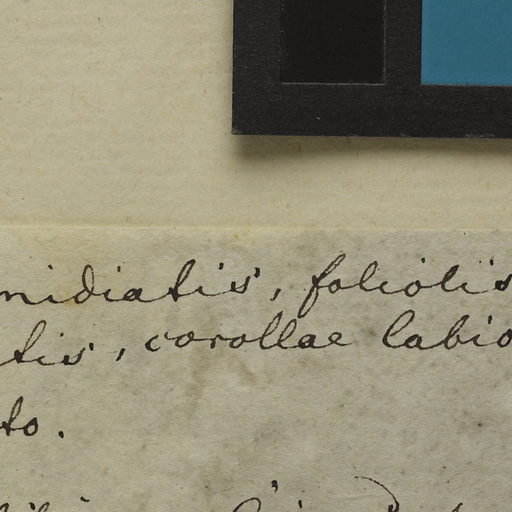 midiatis, foliolis
tis, corollae labio
to.